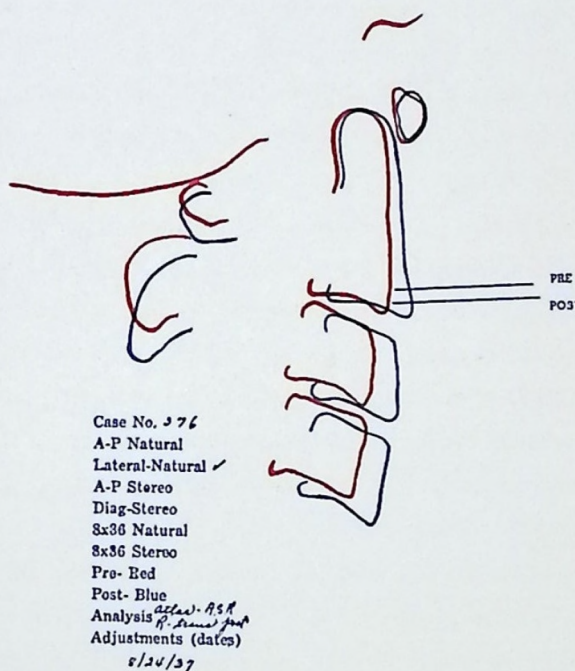 PRE
POS
Case No. 376
A-P Natural
Lateral-Natural ✓
A-P Stereo
Diag-Stereo
8x36 Natural
8x36 Stereo
Pre- Red
Post- Blue
Analysis atlas - ASR
R-
Adjustments (dates)
8/24/37